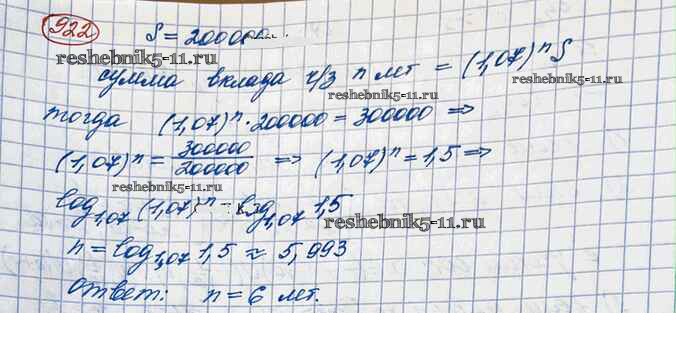 922
S = 200000
reshebnik5-11.ru
сумма вклада ч/з n лет = (1,07)^n S
reshebnik5-11.ru
reshebnik5-11.ru
тогда (1,07)^n · 200000 = 300000 ⇒
(1,07)^n = 300000/200000 ⇒ (1,07)^n = 1,5 ⇒
reshebnik5-11.ru
log_1,07 (1,07)^n = log_1,07 1,5
reshebnik5-11.ru
n = log_1,07 1,5 ≈ 5,993
ответ: n = 6 лет.